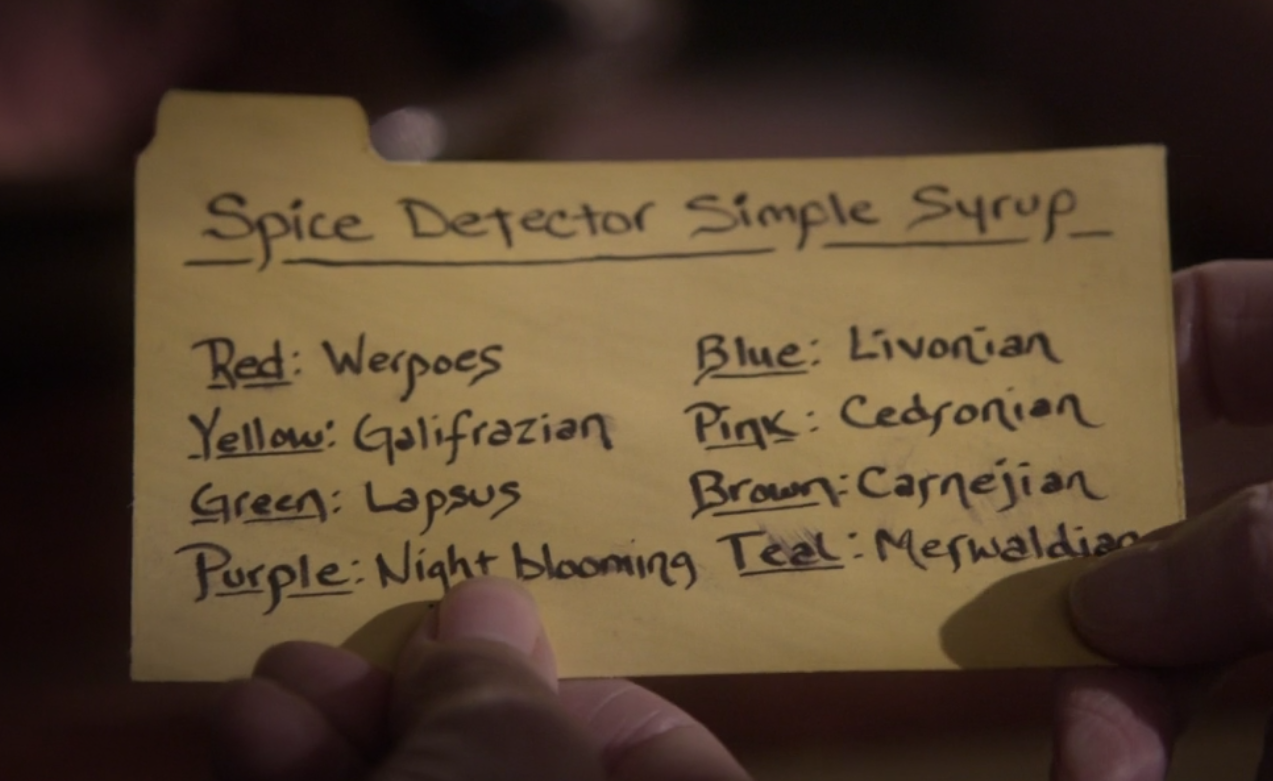 Spice Detector Simple Syrup
Red: Werpoes
Yellow: Galifrazian
Green: Lapsus
Purple: Night blooming
Blue: Livonian
Pink: Cedronian
Brown: Carnejian
Teal: Merwaldian